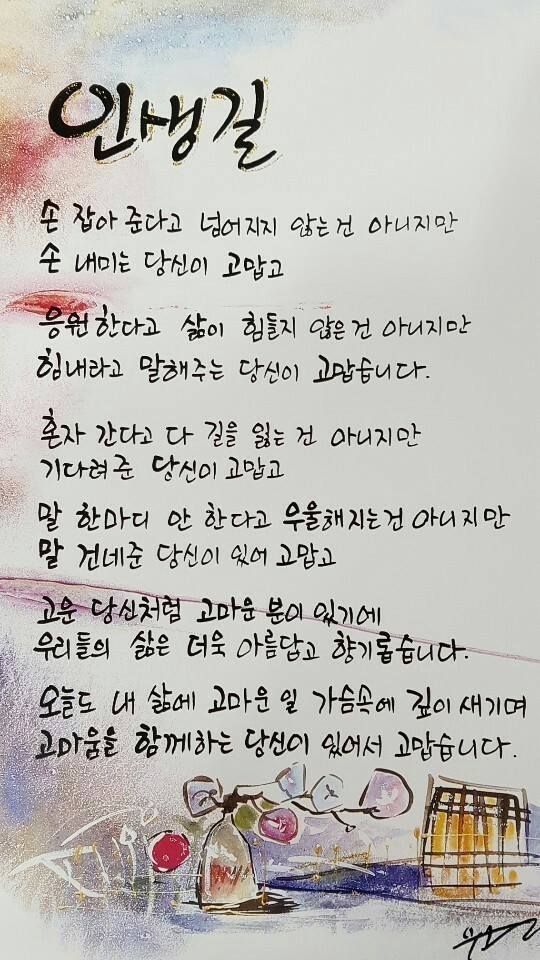 인생길
손 잡아 준다고 넘어지지 않는건 아니지만
손 내미는 당신이 고맙고
응원한다고 삶이 힘들지 않은건 아니지만
힘내라고 말해주는 당신이 고맙습니다.
혼자 간다고 다 길을 잃는 건 아니지만
기다려준 당신이 고맙고
말 한마디 안 한다고 우울해지는건 아니지만
말 건네준 당신이 있어 고맙고
고운 당신처럼 고마운 분이 있기에
우리들의 삶은 더욱 아름답고 향기롭습니다.
오늘도 내 삶에 고마운 일 가슴속에 깊이 새기며
고마움을 함께하는 당신이 있어서 고맙습니다.